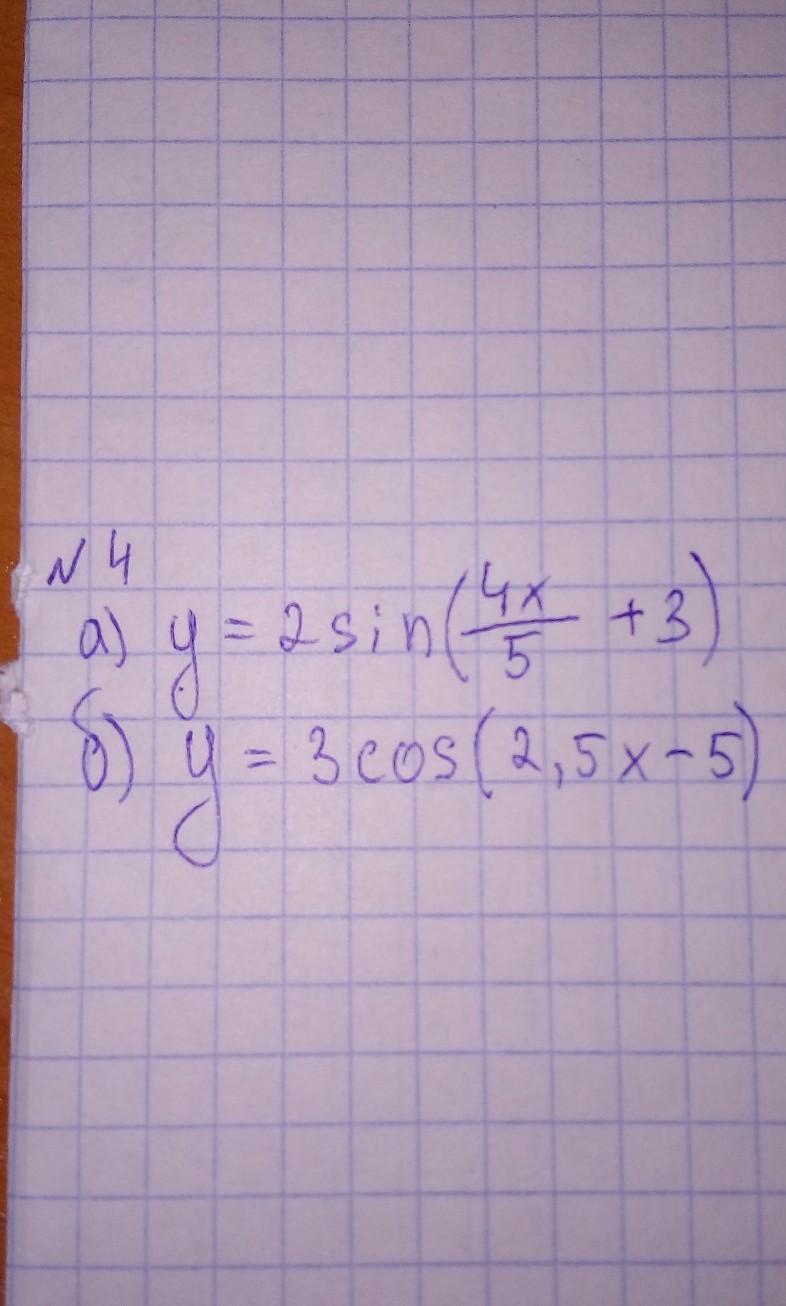 N 4
а) y = 2 sin(4x/5 + 3)
б) y = 3 cos(2,5x - 5)